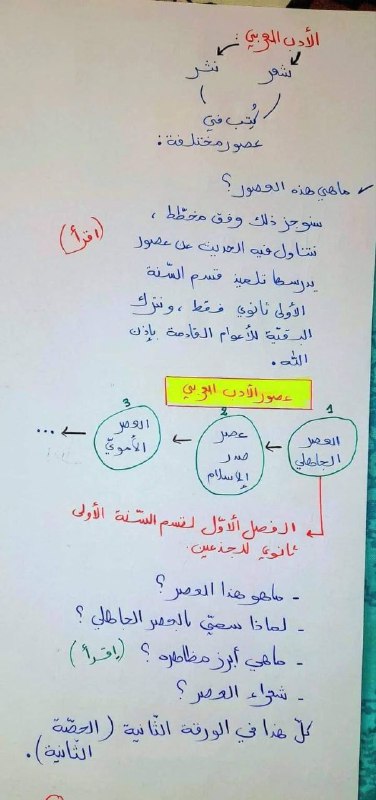 الأدب العربي
شعر نثر
كُتِب في
عصور مختلفة:
ماهي هذه العصور؟
سنوجز ذلك وفق مخطّط،
نتناول فيه الحديث عن عصور
(اقرأ)
يدرسها تلميذ قسم السّنة
الأولى ثانوي فقط، ونترك
البقيّة للأعوام القادمة بإذن
الله.
عصور الأدب العربي
1 2 3
العصر الجاهلي ← عصر صدر الإسلام ← العصر الأمويّ ← ...
الفصل الأوّل لقسم السّنة الأولى
ثانوي للجذعين.
- ماهو هذا العصر؟
- لماذا سمّي بالعصر الجاهلي؟
- ماهي أبرز مظاهره؟ (اقرأ)
- شعراء العصر؟
كلّ هذا في الورقة الثّانية (الحصّة
الثّانية).